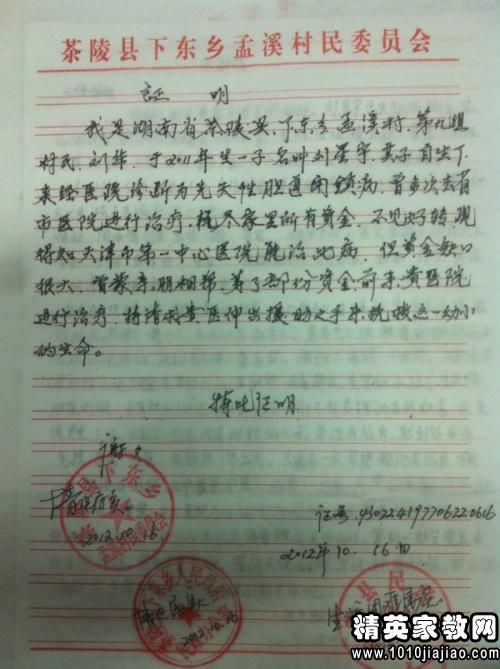 茶陵县下东乡孟溪村民委员会
证 明
我是湖南省茶陵县、下东乡孟溪村、第九组
村民、刘华、于2011年生一子名叫刘星宇、其子自生下
来经医院诊断为先天性胆道闭锁病、曾多次去省
市医院进行治疗、花尽家里所有资金、不见好转、现
得知天津市第一中心医院能治此病、但资金缺口
很大、曾蒙亲朋相帮、筹了部份资金前来贵医院
进行治疗、特请求贵医伸出援助之手来挽救这一幼小
的生命。
特此证明
谢
证号:430224197706220616
2012年10.16日
2012.10.16
县下东乡
孟溪村民委员会
下东乡人民政府
县民
精英家教网
www.1010jiajiao.com